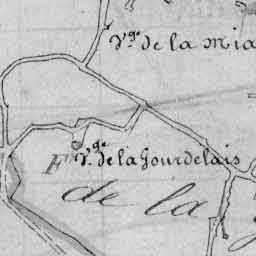 V.ge de la Mia
F
V.ge de la Gourdelais
de la